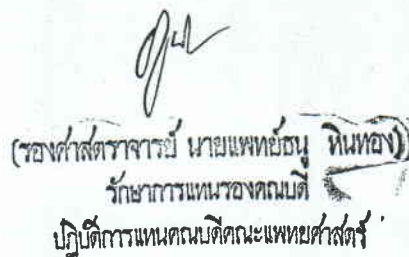 (รองศาสตราจารย์ นายแพทย์ธนู หินทอง)
รักษาการแทนรองคณบดี
ปฏิบัติการแทนคณบดีคณะแพทยศาสตร์